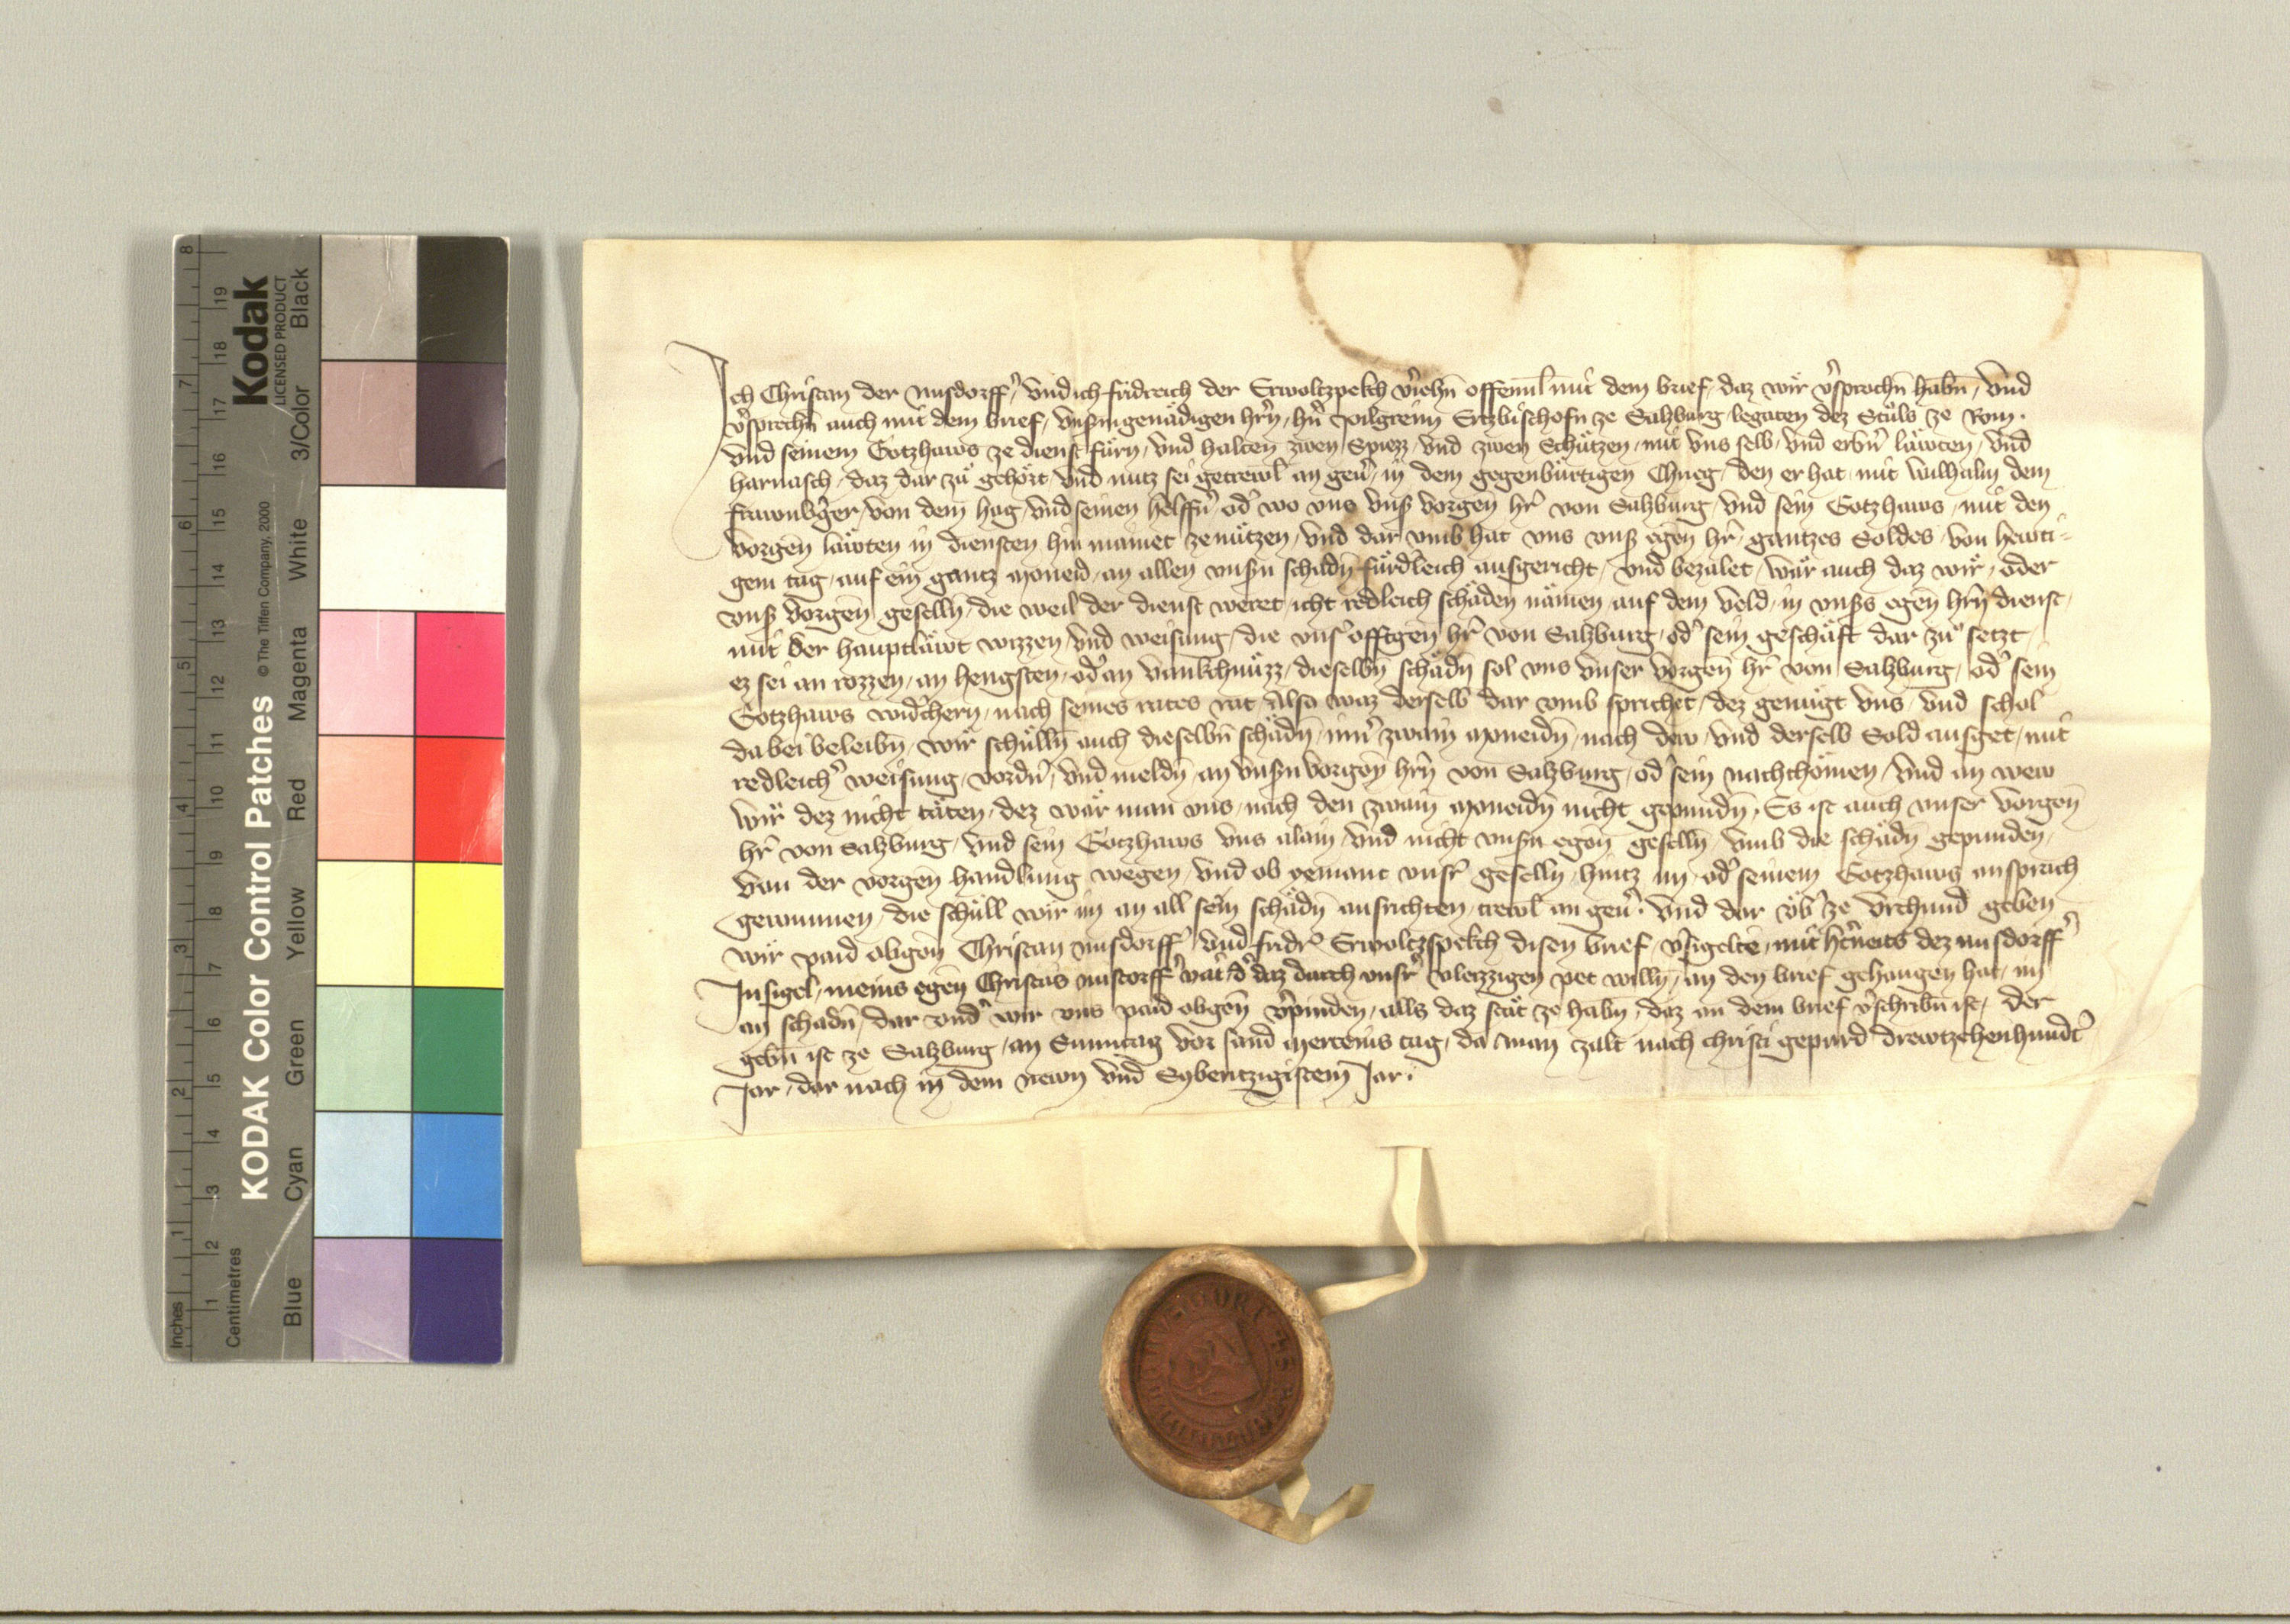 KODAK Color Control Patches
Kodak
LICENSED PRODUCT
© The Tiffen Company, 2000
Inches
Centimetres
Blue Cyan Green Yellow Red Magenta White 3/Color Black
Ich Christan der Nusdorff(er), vnd ich fridreich der Erwoltzpekch v(er)iehn̄ offennl̄ mit dem brief, daz wir v(er)sprochn̄ habn̄, vnd
v(er)sprechn̄ auch mit dem brief, vnsm̄ genädigen hrn̄, hn̄ Pilgreim Ertzbischofn ze Salzburg, legaten dez Stuls ze Rom.
vnd seinem Gotzhaws ze dienst fürn, vnd halten zwen Spiezz, vnd zwen Schützen, mit vns selb, vnd erbn̄ läwten, vnd
harnasch, daz dar zů gehört, vnd nutz sei getrewl̄ an geu(er)d, in dem gegenbürtigen Chrieg, den er hat mit Wilhalm dem
frawnb(er)ger, von dem hag, vnd seinen helffn̄, od(er) wo vns vns(er) vorgen̄ hr̄ von Salzburg, vnd sein Gotzhaws, mit den
vorgen̄ läwten in diensten hin mainet ze nützen, vnd dar vmb hat vns vns(er) egen̄ hr̄, gantzes Soldes, von hewti=
gem tag, auf ein gantz Moneid, an allen vnsn̄ schadn̄ fürdleich ausgericht, vnd bezalet, wär auch daz wir, oder
vns(er) vorgen̄ geselln̄, die weil der dienst weret, icht redleich schäden nämen, auf dem veld, in vns(er)s egen̄ hrn̄ dienst,
mit der hauptläwt wizzen, vnd weisung, die vns(er) offtgen̄ hr̄ von Salzburg, od(er) sein geschäft dar zů setzt,
ez sei an rozzen, an hengsten, od(er) an vankchnüzz, dieselbn̄ schädn̄ sol vns vnser vorgen̄ hr̄ von Salzburg, od(er) sein
Gotzhaws wid(er)chern, nach seines rates rat, Also waz derselb dar vmb sprichet, dez genügt vns, vnd schol
da bei beleibn̄, wir schülln̄ auch dieselbn̄ schädn̄, inn(er) zwain Moneidn̄, nach dew, vnd derselb Sold ausget, mit
redleich(er) weisung, vordn̄, vnd meldn̄, an vnsn̄ vorgen̄ hrn̄ von Salzburg, od(er) sein nachchömen, vnd an wew
wir dez nicht täten, dez wär man vns, nach den zwain Moneidn̄ nicht gepundn̄, Es ist auch vnser vorgen̄
hr̄ von Salzburg, vnd sein Gotzhaws vns alain, vnd nicht vnsn̄ egen̄ geselln̄, vmb die schädn̄ gepunden,
von der vorgen̄ handlung wegen, vnd ob yemant vns(er) geselln̄, hintz im, od(er) seinem Gotzhaws ansprach
gewunnen, die schüll wir im an all sein schädn̄ ausrichten, trewl̄ an geu(er)d. Vnd dar üb(er) ze vrchund geben
wir paid obgen̄ Christan Nusdorff(er), vnd fridr̄ Erwoltzpekch disen brief, v(er)sigelten, mit hern̄ dez Nusdorff(er)
Insigel, meins egen̄ Christās Nustorff(er) vat(er), d(er) daz durch vnsr(er) vleizzigen pet willn̄, an den brief gehangen hat, im
an schadn̄, dar vnd(er) wir vns paid obgen̄ v(er)pinden, allz daz stät ze habn, daz an dem brief v(er)schribn̄ ist, der
gebn̄ ist ze Salzburg, an Sunntag vor sand Merteins tag, da man zalt nach christi gepurd drewtzehenhundt(er)
Jar, dar nach in dem newn vnd Sybentzigistem Jar.